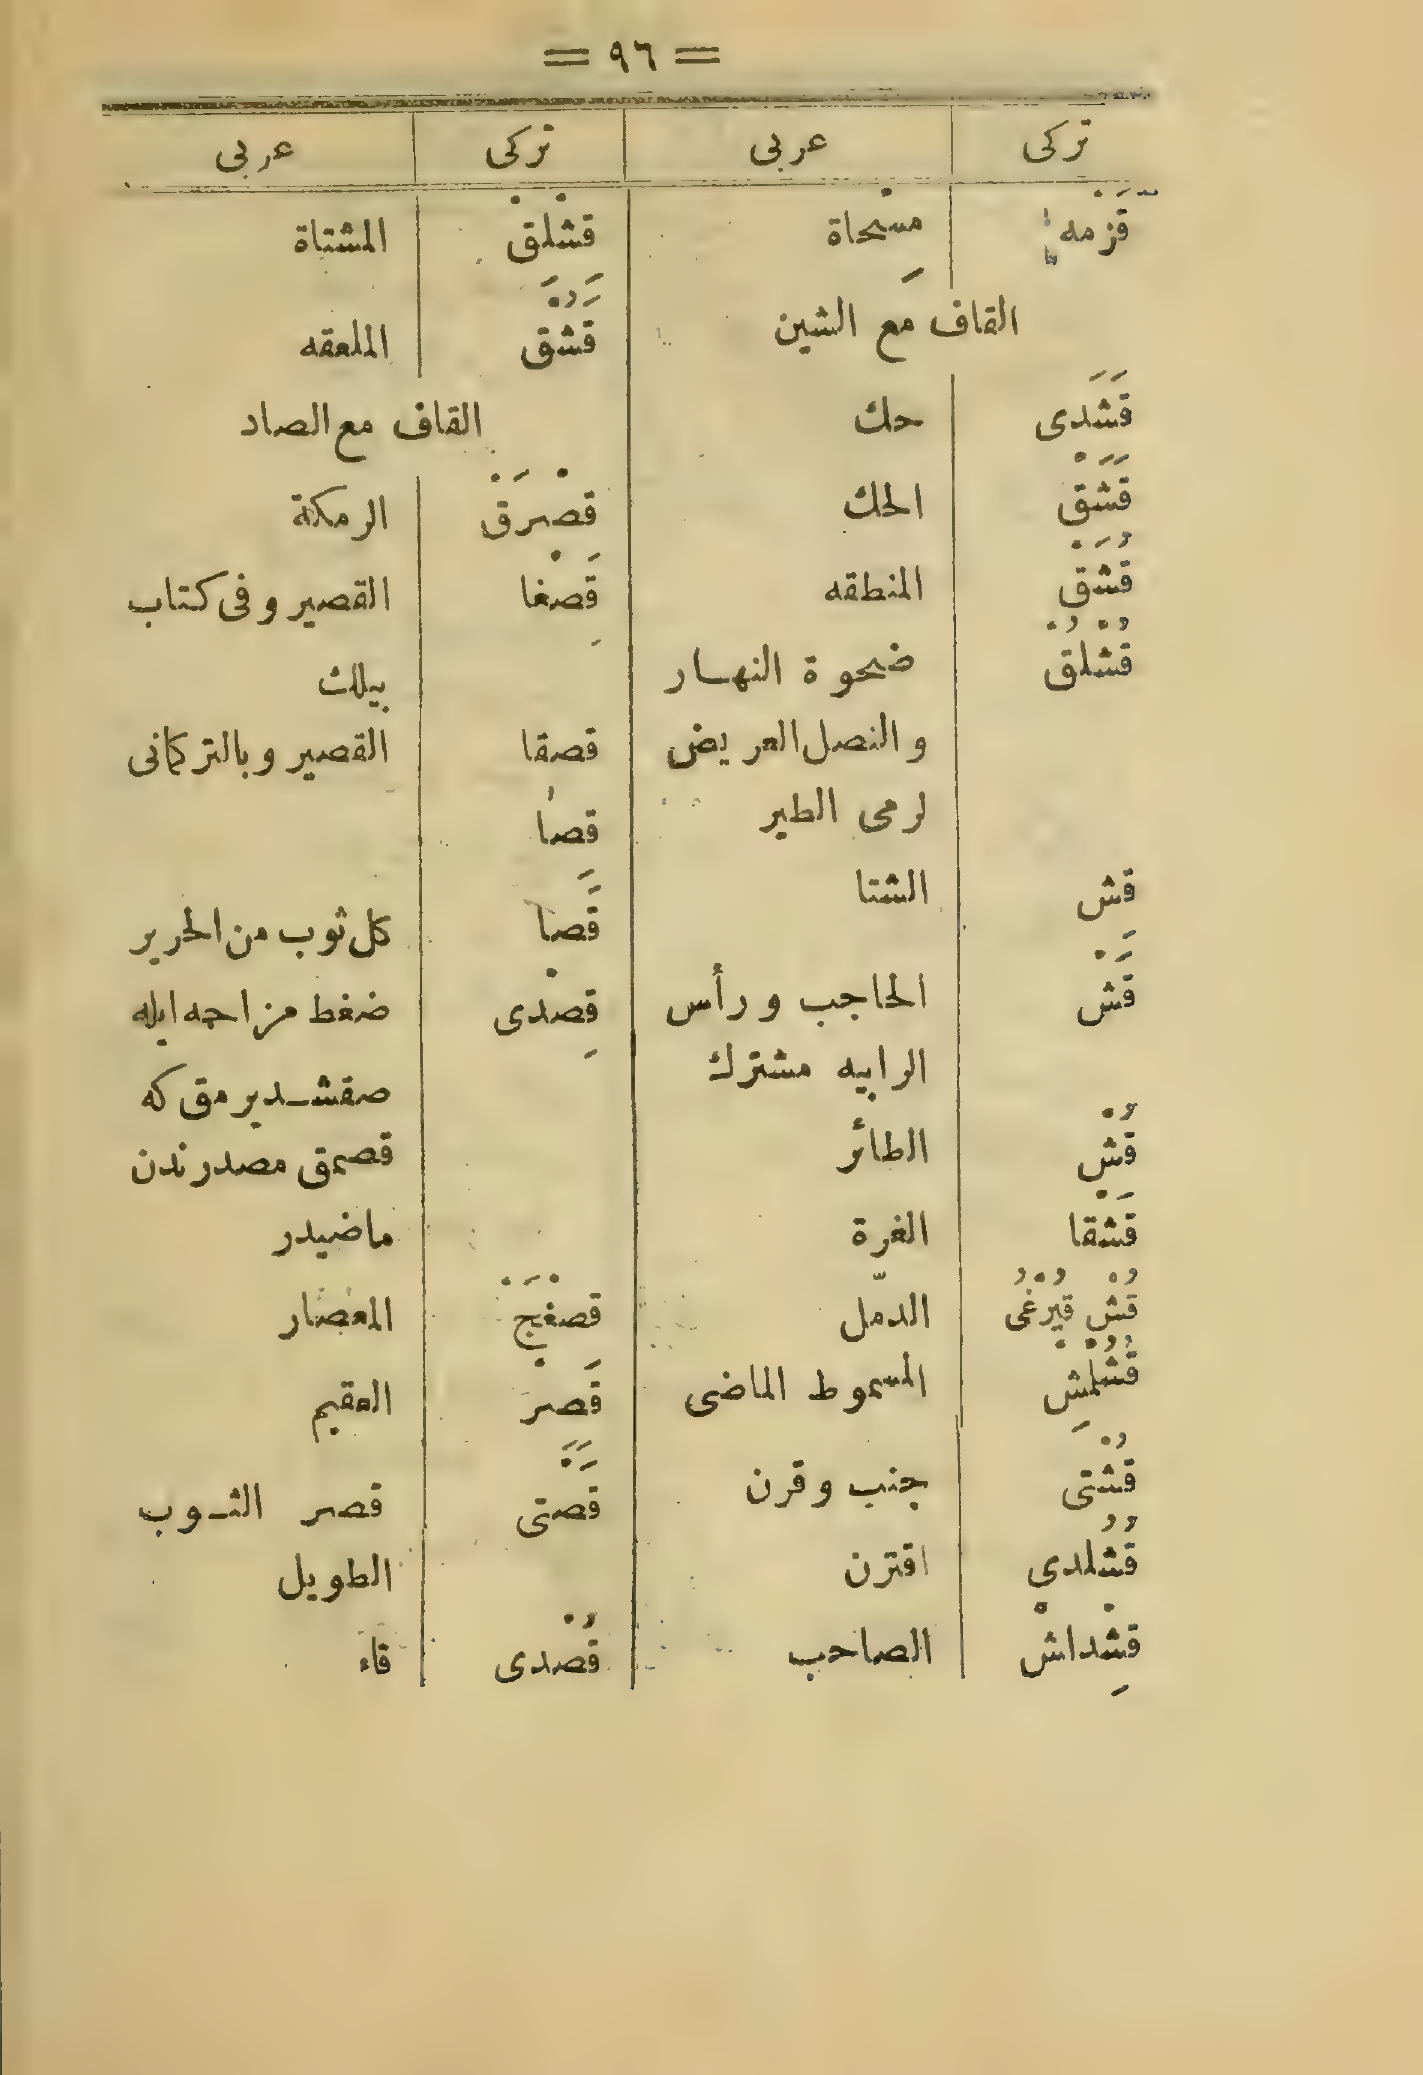 = ٩٦ =
تركى	عربى
قَزْمه	مِسْحاة
القاف مع الشين
قَشَدى	حك
قَشَقْ	الحك
قُشَقْ	المنطقه
قُشْلُقْ	ضحوة النهار
والنصل العريض
لرمى الطير
قش	الشتا
قَشْ	الحاجب ورأس
الرابيه مشترك
قُشْ	الطائر
قَشْقا	الغرة
قُشْ قُيْرُغى	الدمّل
قُشُلْمِش	المسموط الماضى
قُشْتى	جنب وقرن
قُشُلدى	اقترن
قِشْداشْ	الصاحب
تركى	عربى
قشْلقْ	المشتاة
قَشُقْ	الملعقه
القاف مع الصاد
قصْرَقْ	الرمكة
قِصَغْا	القصير وفى كتاب
بيلك
قصقا	القصير وبالتركمانى
قصا
قَصَا	كل ثوب من الحرير
قِصْدى	ضغط مزاحمه ايله
صقشديرمق كه
قصمق مصدرندن
ماضيدر
قصْغَجْ	المعصار
قَصرْ	العقيم
قَصَتى	قصر الثوب
الطويل
قُصْدى	قاء